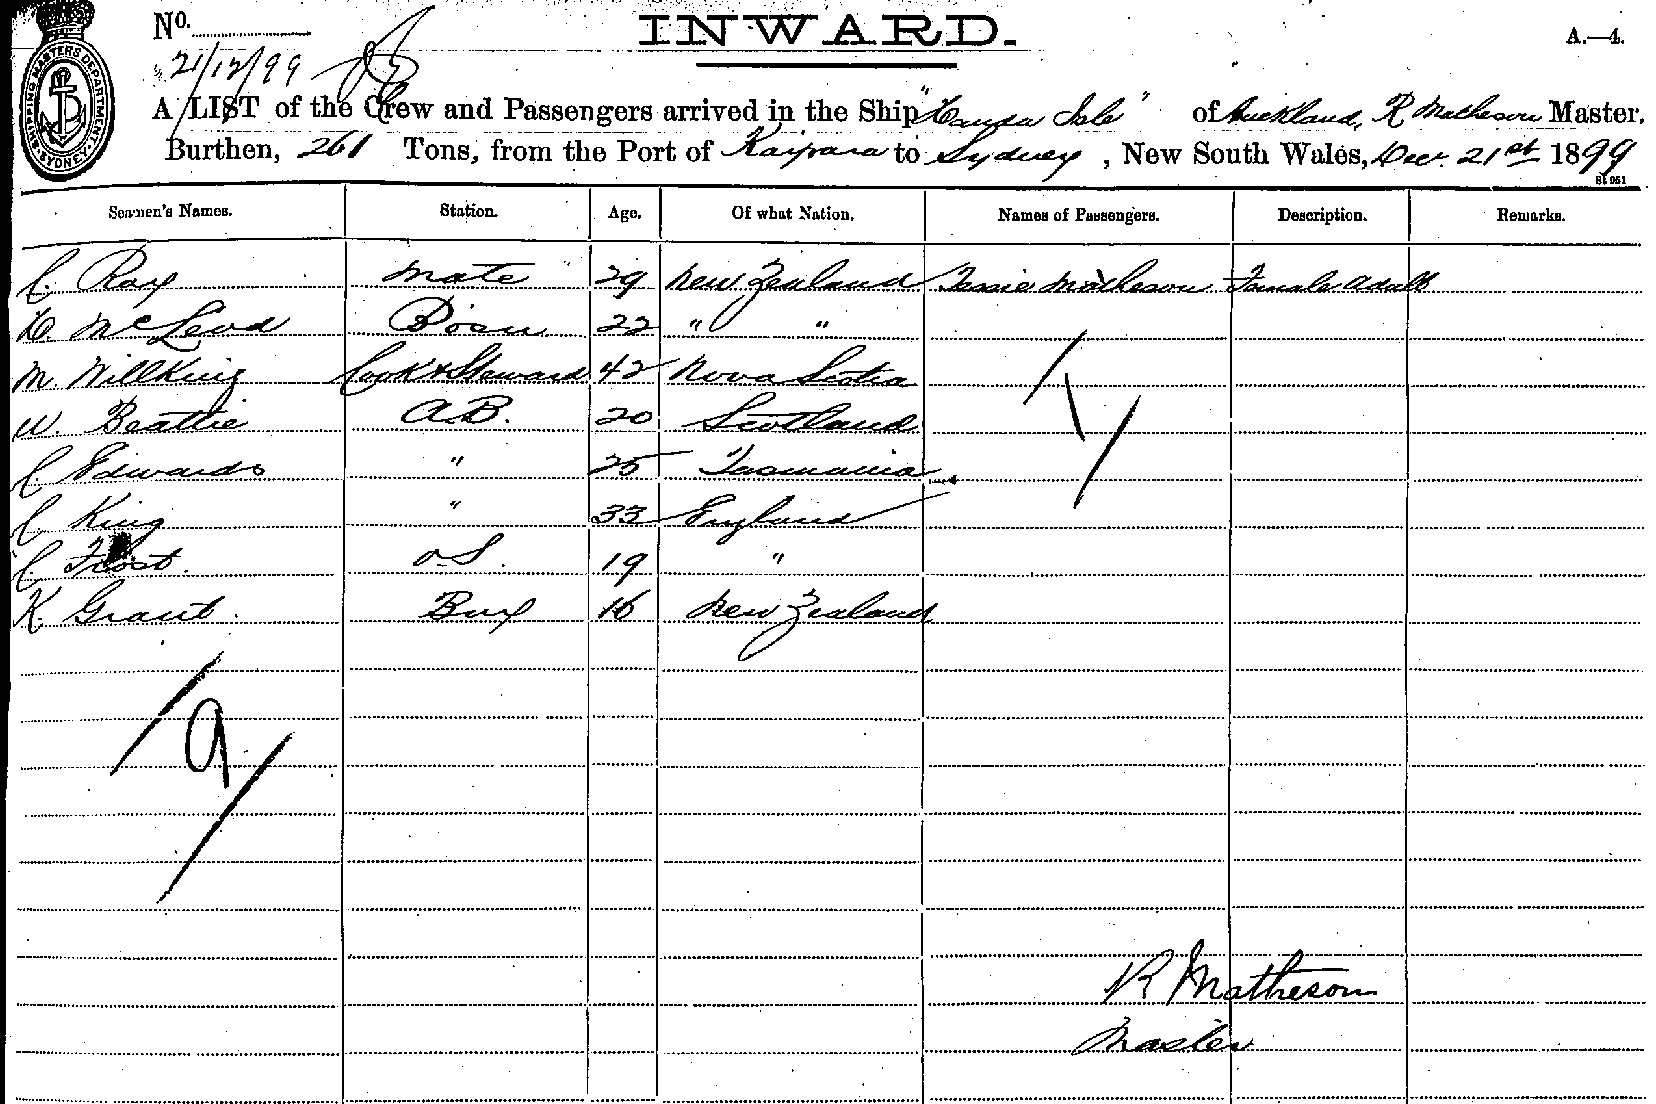 No.
INWARD.
A.—4.
SHIPPING MASTERS DEPARTMENT SYDNEY
21/12/99
A LIST of the Crew and Passengers arrived in the Ship "Handa Isle" of Auckland, R Matheson Master,
Burthen, 261 Tons, from the Port of Kaipara to Sydney, New South Wales, Dec. 21st 1899
Seamen's Names. Station. Age. Of what Nation. Names of Passengers. Description. Remarks.
C. Ray Mate 29 New Zealand Jessie Matheson Female adult
H. McLeod Bosn 22 " "
M Willking Cook & Steward 42 Nova Scotia
W. Beattie A.B. 20 Scotland
C Edwards " 25 Tasmania
C King " 33 England
C. Frost. O.S. 19 "
K. Grant. Boy 16 New Zealand
/1/
/9/
R Matheson
Master